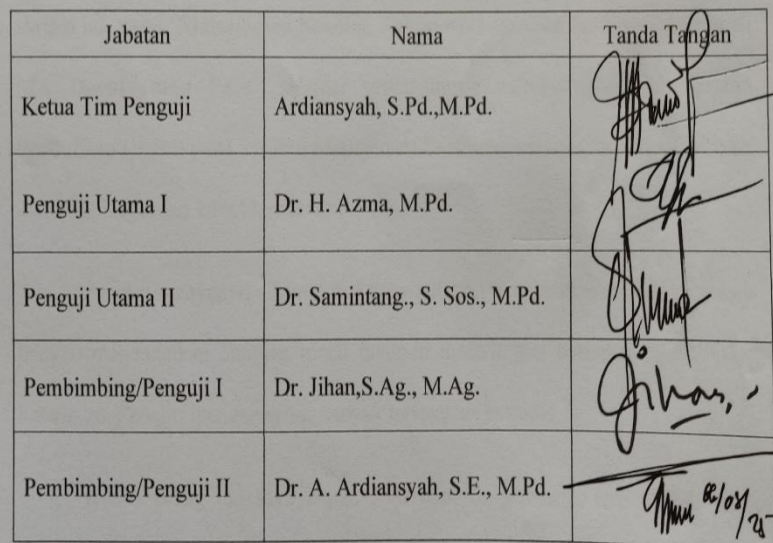 Jabatan Nama Tanda Tangan
Ketua Tim Penguji Ardiansyah, S.Pd.,M.Pd.
Penguji Utama I Dr. H. Azma, M.Pd.
Penguji Utama II Dr. Samintang., S. Sos., M.Pd.
Pembimbing/Penguji I Dr. Jihan,S.Ag., M.Ag. Jihan,
Pembimbing/Penguji II Dr. A. Ardiansyah, S.E., M.Pd.